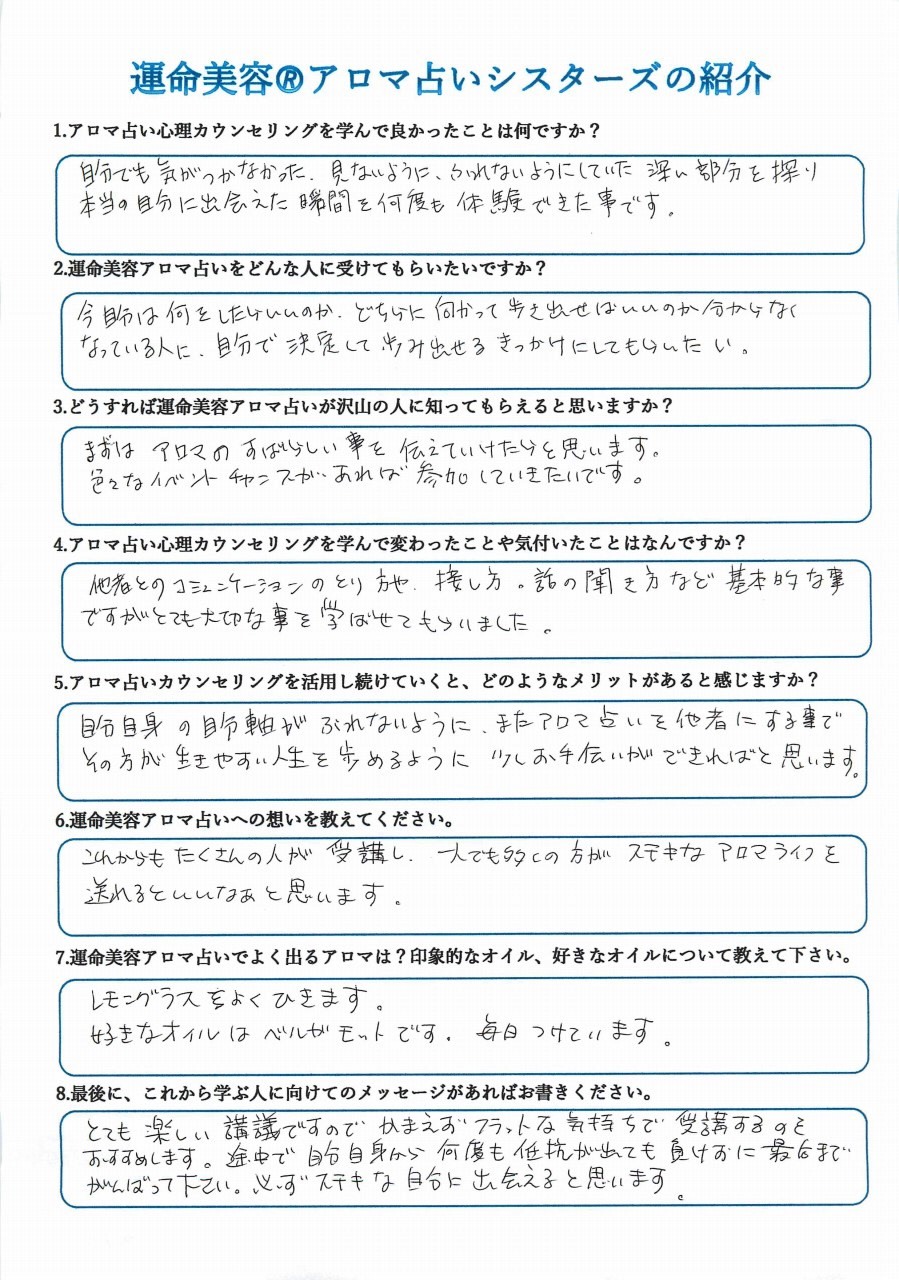 運命美容®アロマ占いシスターズの紹介
1.アロマ占い心理カウンセリングを学んで良かったことは何ですか？
自分でも気がつかなかった、見ないように、ふれないようにしていた深い部分を探り
本当の自分に出会えた瞬間を何度も体験できた事です。
2.運命美容アロマ占いをどんな人に受けてもらいたいですか？
今自分は何をしたらいいのか、どちらに向かって歩き出せばいいのか分からなく
なっている人に、自分で決定して歩み出せるきっかけにしてもらいたい。
3.どうすれば運命美容アロマ占いが沢山の人に知ってもらえると思いますか？
まずはアロマのすばらしい事を伝えていけたらと思います。
色々なイベントチャンスがあれば参加していきたいです。
4.アロマ占い心理カウンセリングを学んで変わったことや気付いたことはなんですか？
他者とのコミュニケーションのとり方や、接し方。話の聞き方など基本的な事
ですがとても大切な事を学ばせてもらいました。
5.アロマ占いカウンセリングを活用し続けていくと、どのようなメリットがあると感じますか？
自分自身の自分軸がぶれないように、またアロマ占いを他者にする事で
その方が生きやすい人生を歩めるように少しお手伝いができればと思います。
6.運命美容アロマ占いへの想いを教えてください。
これからもたくさんの人が受講し、一人でも多くの方がステキなアロマライフを
送れるといいなぁと思います。
7.運命美容アロマ占いでよく出るアロマは？印象的なオイル、好きなオイルについて教えて下さい。
レモングラスをよくひきます。
好きなオイルはベルガモットです。毎日つけています。
8.最後に、これから学ぶ人に向けてのメッセージがあればお書きください。
とても楽しい講議ですのでかまえずフラットな気持ちで受講するのを
おすすめします。途中で自分自身から何度も低抗が出ても負けずに最後まで
がんばって下さい。必ずステキな自分に出会えると思います。